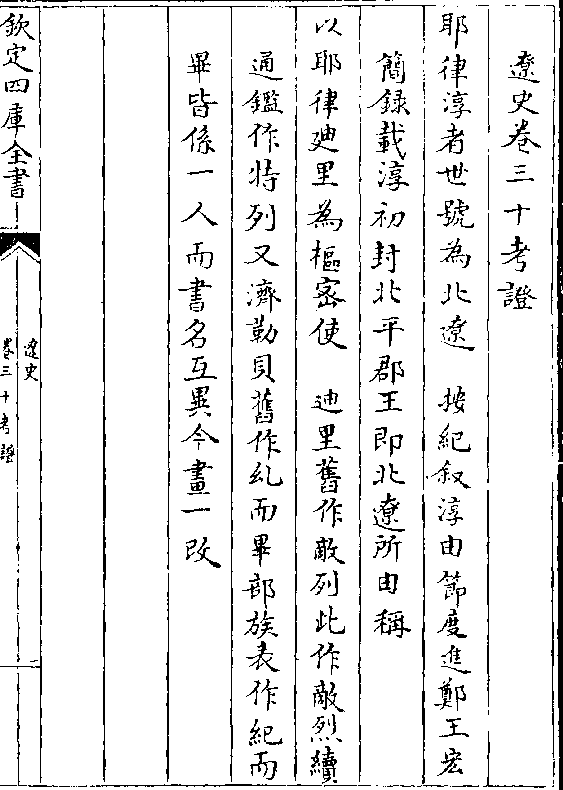 遼史卷三十考證
耶律淳者世號為北遼　按紀叙淳由節度進鄭王宏
簡録載淳初封北平郡王即北遼所由稱
以耶律廸里為樞宻使　廸里舊作敵列此作敵烈續
通鑑作特列又濟勒貝舊作乣而畢部族表作紀而
畢皆係一人而書名互異今畫一改
欽定四庫全書
遼史
卷三十考證
一